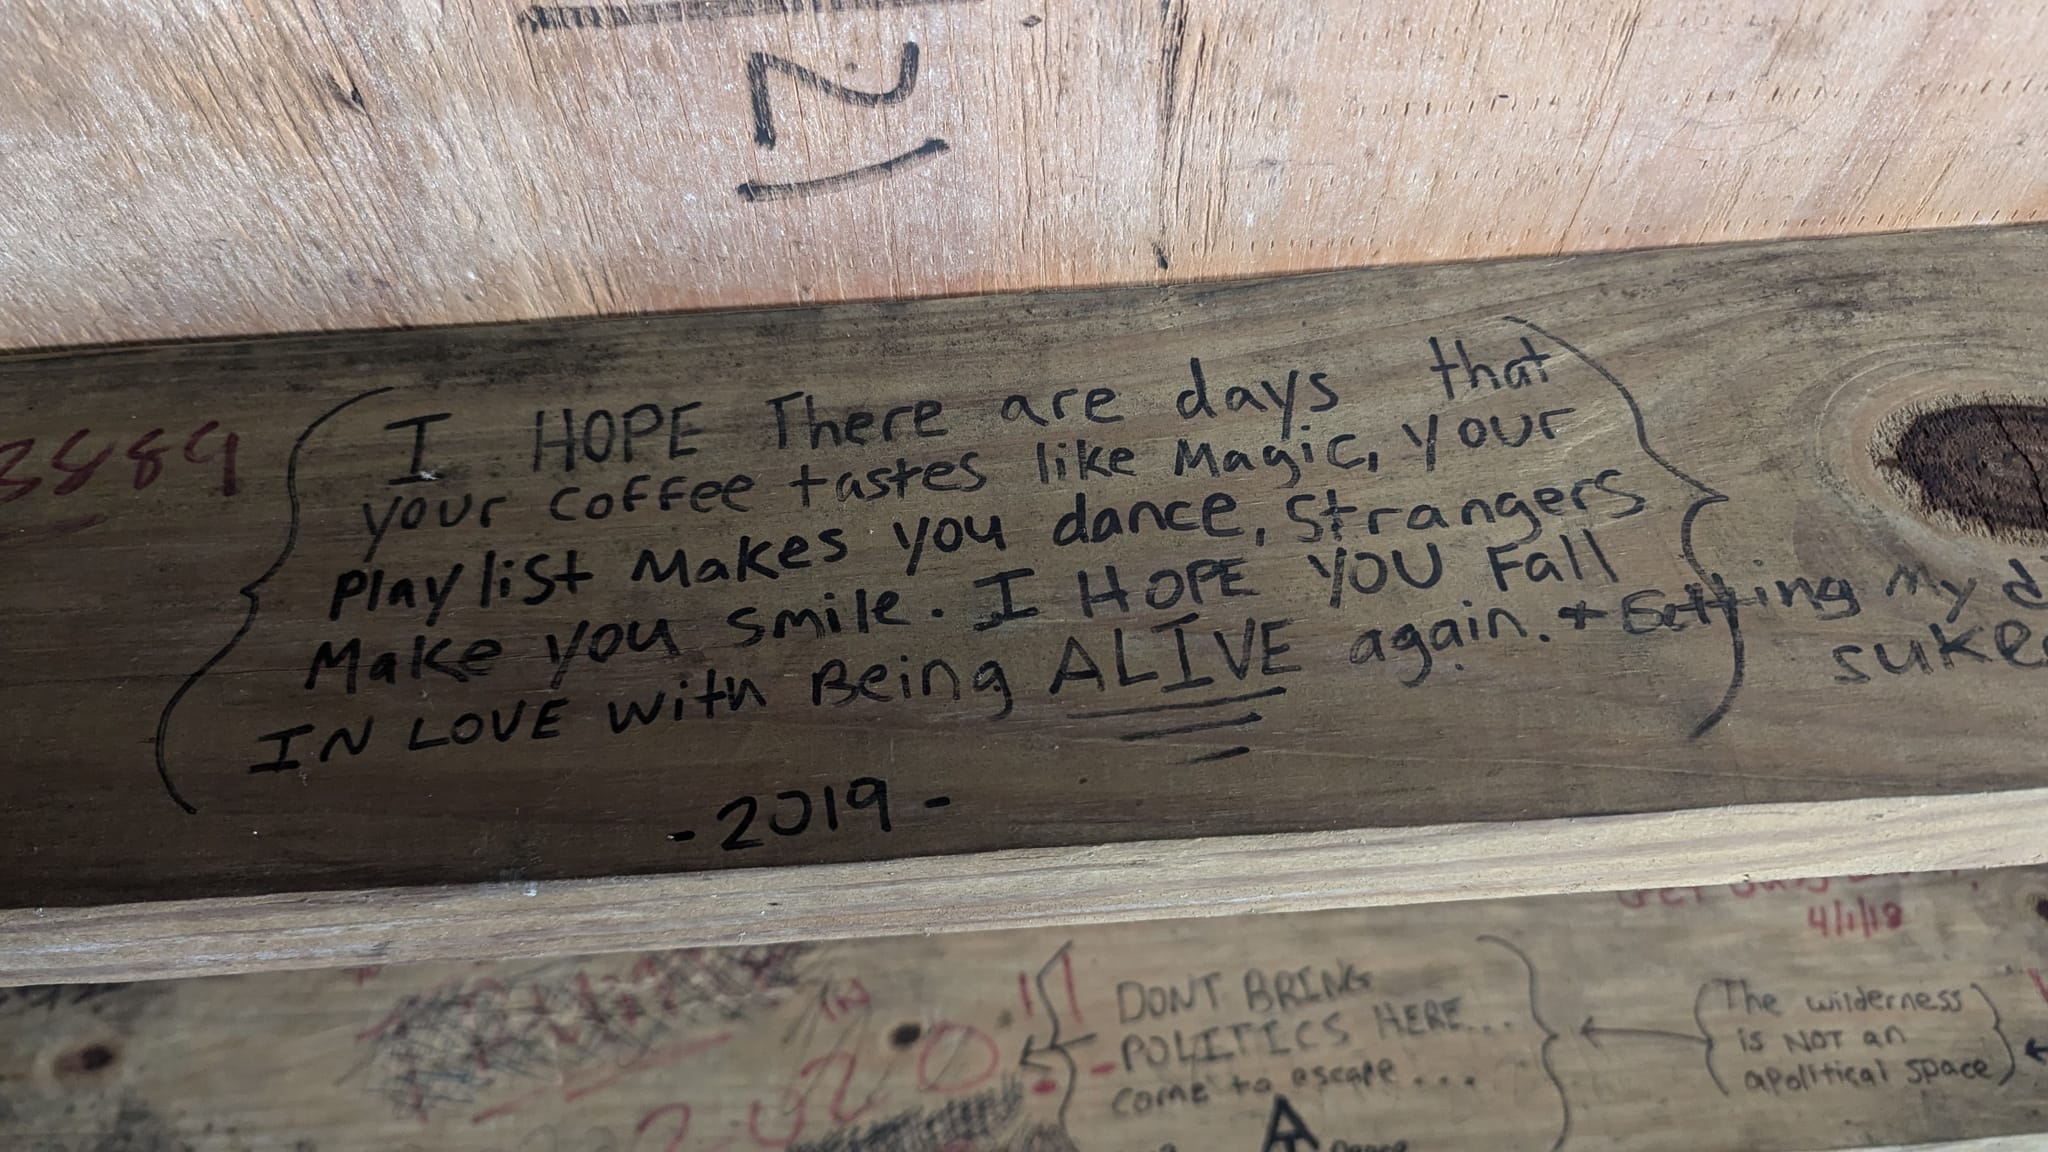 21
3889
I HOPE There are days that
your coffee tastes like Magic, your
Playlist Makes you dance, strangers
Make you smile. I HOPE YOU Fall
IN LOVE with Being ALIVE again. + Getting My
suke
- 2019 -
4/1/18
DONT BRING
POLITICS HERE...
come to escape...
The wilderness
is NOT an
apolitical space